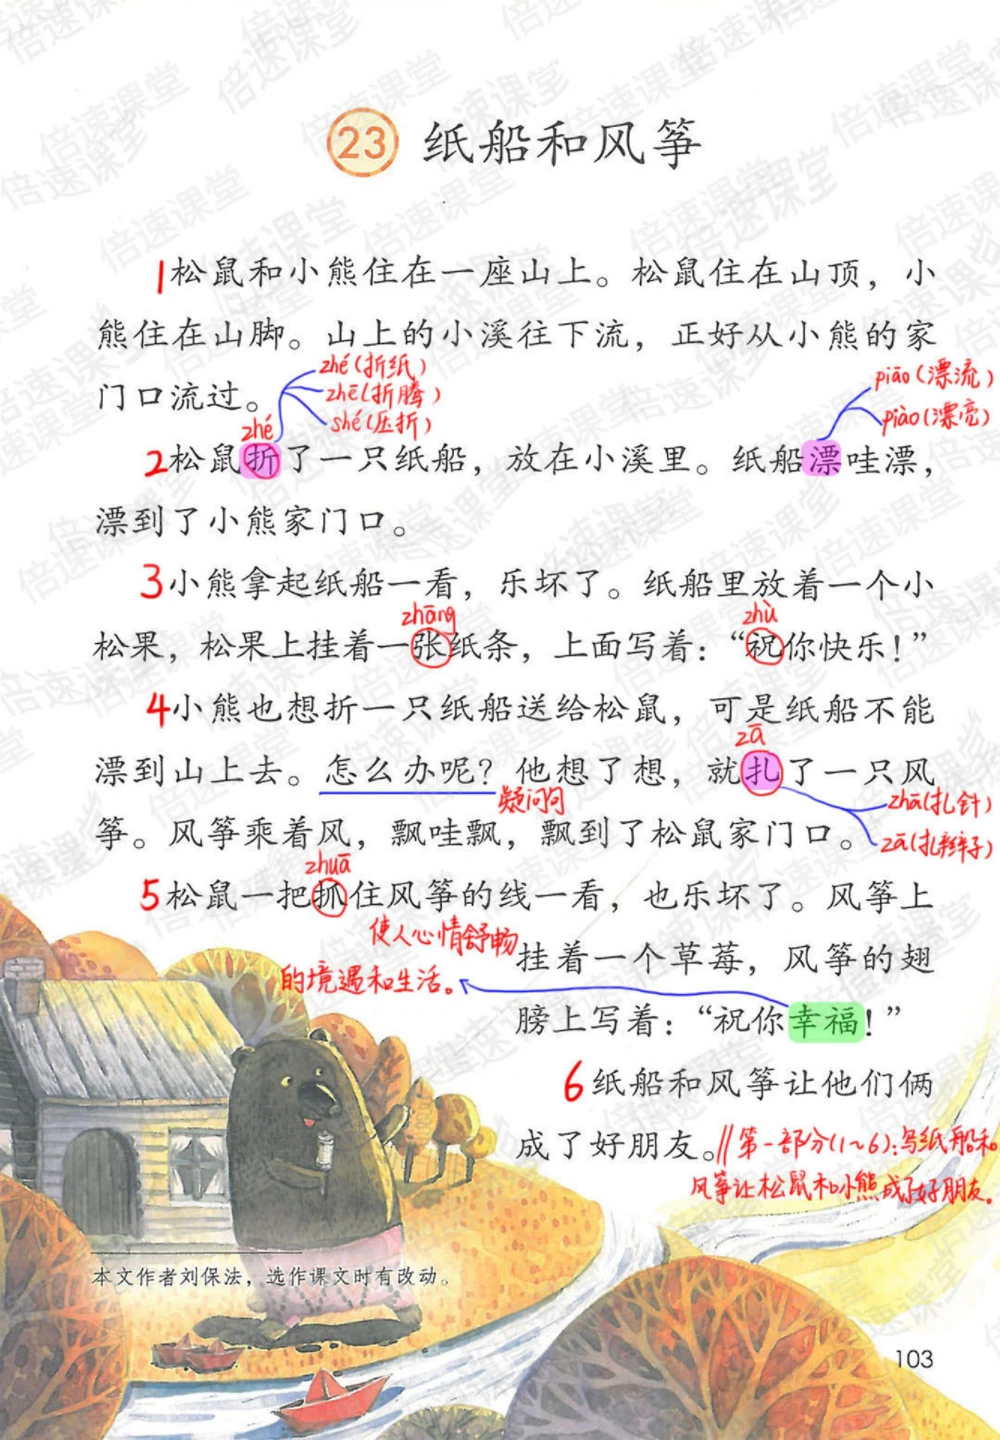 23 纸船和风筝
1松鼠和小熊住在一座山上。松鼠住在山顶，小
熊住在山脚。山上的小溪往下流，正好从小熊的家
门口流过。
zhé(折纸)
zhē(折腾)
shé(压折)
piāo(漂流)
piào(漂亮)
zhé
2松鼠折了一只纸船，放在小溪里。纸船漂哇漂，
漂到了小熊家门口。
3小熊拿起纸船一看，乐坏了。纸船里放着一个小
zhāng
zhù
松果，松果上挂着一张纸条，上面写着：“祝你快乐！”
4小熊也想折一只纸船送给松鼠，可是纸船不能
zā
漂到山上去。怎么办呢？他想了想，就扎了一只风
疑问句
zhā(扎针)
zā(扎辫子)
筝。风筝乘着风，飘哇飘，飘到了松鼠家门口。
zhuā
5松鼠一把抓住风筝的线一看，也乐坏了。风筝上
使人心情舒畅
的境遇和生活。
挂着一个草莓，风筝的翅
膀上写着：“祝你幸福！”
6纸船和风筝让他们俩
成了好朋友。
∥第一部分(1～6):写纸船和
风筝让松鼠和小熊成了好朋友。
本文作者刘保法，选作课文时有改动。
103
倍速课堂